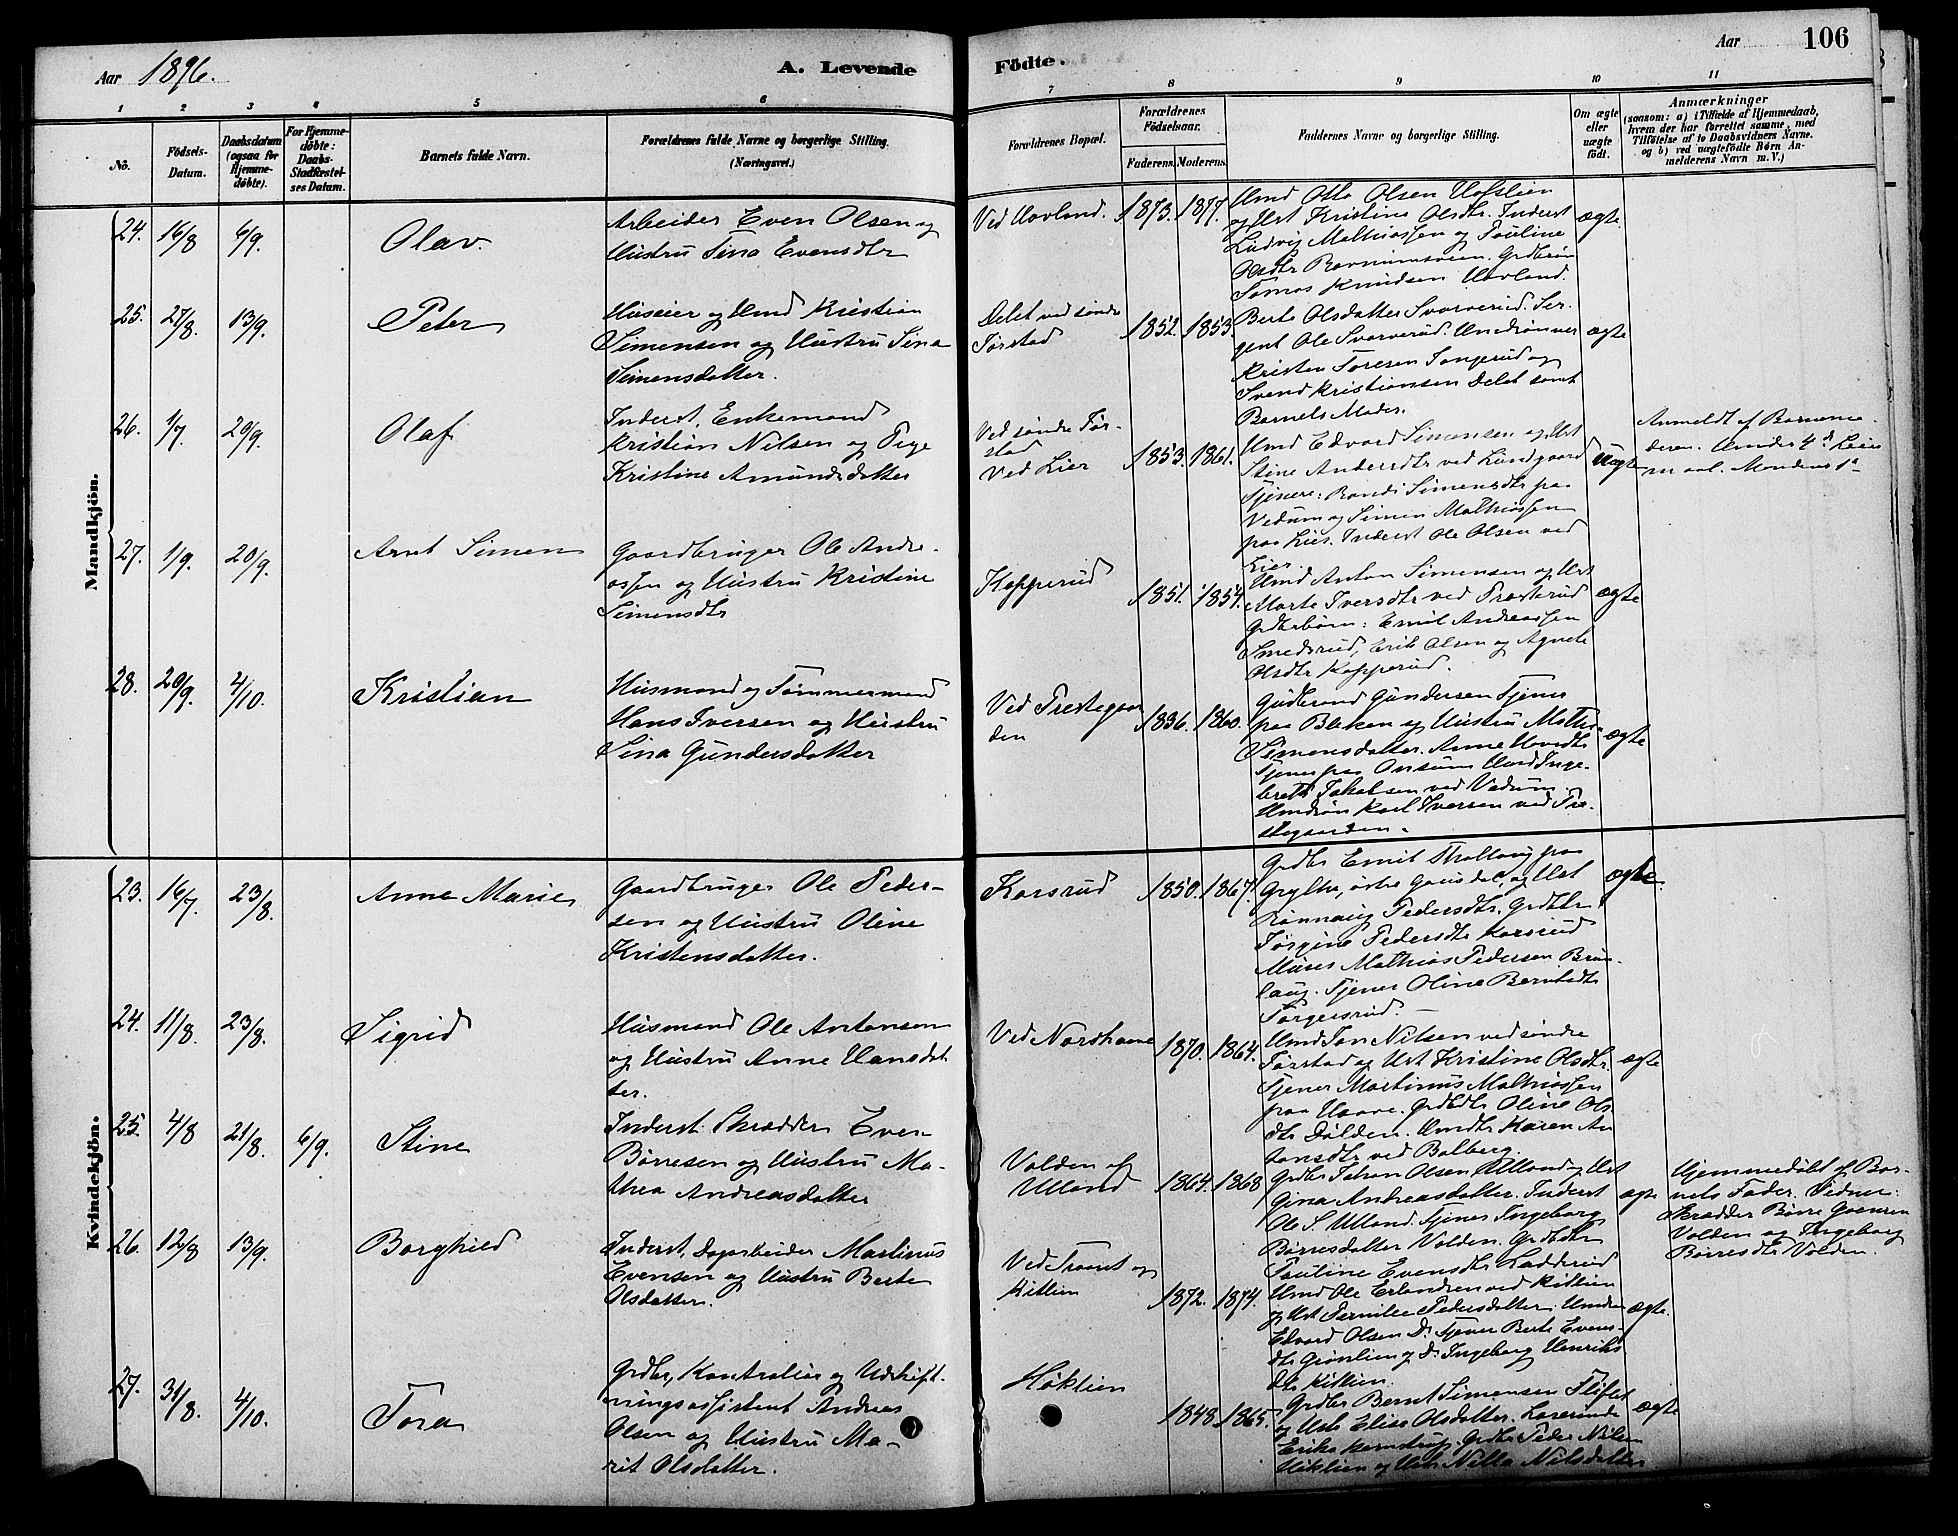 Aar 1896.
A. Levende
Födte.
Aar
106
1 2 3 4 5 6 7 8 9 10 11
No.
Födsels-
Datum.
Daabsdatum
(ogsaa for
Hjemme-
döbte).
For Hjemme-
döbte:
Daabs-
Stadfæstel-
ses Datum.
Barnets fulde Navn.
Forældrenes fulde Navne og borgerlige Stilling.
(Næringsvei.)
Forældrenes Bopæl.
Forældrenes
Födselsaar.
Faderens. Moderens.
Faddernes Navne og borgerlige Stilling.
Om ægte
eller
uægte
födt.
Anmærkninger
(saasom: a) i Tilfælde af Hjemmedaab,
hvem der har forrettet samme, med
Tilföielse af to Daabsvidners Navne.
og b) ved uægtefödte Börn An-
melderens Navn m. V.)
Mandkjön.
24. 16/8 6/9. Olav.
Arbeider Even Olsen og
Hustru Sina Evensdtr
Ved Hovland. 1873. 1877.
Umd Otto Olsen Hofslien
og Ust Kristine Olsdtr. Inderst
Ludvig Mathiassen og Pauline
Olsdtr
Tomas Knudsen Hovland.
ægte
25. 27/8. 13/9. Peter
Huseier og Umd Kristian
Simensen og Hustru Sina
Simensdatter.
Delet ved söndre
Förstad
1852. 1853.
Berte Olsdatter Svarverud. Ser-
gent Ole Svarverud. Umdrönner
Kristen Toresen Songerud og
Svend Kristiansen Delet samt
Barnets Moder.
ægte
26. 1/7. 20/9. Olaf
Inderst, Enkemand
Kristian Nilsen og Pige
Kristine Amundsdatter
Ved söndre För-
stad
Ved Lier
1853. 1861.
Umd Edvard Simensen og Ust
Stine Andersdtr ved Lundgaard
Tjenere: Randi Simensdtr paa
Vedum og Simen Mathiassen
paa Lier. Inderst Ole Olsen ved
Lier.
uægte
Anmeldt af Barnemo-
deren. Hendes 4de Leier-
maal. Mandens 1ste
27. 1/9. 20/9. Arnt Simen
Gaardbruger Ole Andre-
assen og Hustru Kristine
Simensdtr
Kopperud 1851. 1854.
Umd Anton Simensen og Ust
Marte Iversdtr ved Prösterud
Grdbrbörn: Emil Andreassen
Smedsrud, Erik Olsen og Agnete
Olsdtr Kopperud.
ægte
28. 20/9. 4/10. Kristian
Husmand og Tömmermand
Hans Iversen og Hustru
Sina Gundersdatter
Ved Prestegaar
den
1836. 1860.
Gudbrand Gundersen Tjener
paa Bleken og Hustru Mathe
Simensdatter. Anne
Tjener paa Onsum Umd Inge-
bret Jakobsen ved Vedum.
Umdrön Karl Iversen ved Pre-
stegaarden.
ægte
Kvindekjön.
23. 16/7. 23/8. Anne Marie
Gaardbruger Ole Peder-
sen og Hustru Oline
Kristensdatter.
Korsrud 1850. 1867.
Grdbr Emil
Grytte, östre Gausdal, og Ust
Rönnaug Pedersdtr. Grdbdtr
Jörgine Pedersdtr Korsrud
Murer Mathias Pedersen Brun-
laug. Tjener Oline Berntsdtr
Torgersrud.
ægte.
24. 11/8. 23/8. Sigrid
Husmand Ole Antonsen
og Hustru Anne Hansdat
ter.
Ved Nordhove 1870. 1864.
Umd Jon Nilsen ved söndre
Förstad og Ust Kristine Olsdtr.
Tjener Martinus Mathiassen
paa Haave. Grdbdtr Oline Ols
dtr Dölden. Umdtr Karen An
tonsdtr ved Bolberg.
ægte
25. 4/8 21/8. 6/9. Stine
Inderst. Skrædder Even
Börresen og Hustru Ma-
thea Andreasdatter
Volden af
Ulland
1864. 1868
Grdbr Johan Olsen Ulland og Ust
Gina Andreasdatter. Inderst
Ole S. Ulland. Tjener Ingeborg
Börresdatter Volden. Grdbdtr
Pauline Evensdtr Ladderud
ægte
Hjemmedöbt af Bar-
nets Fader. Vidner:
Skrædder Börre Goensen
Volden og Ingeborg
Börresdtr Volden.
26. 12/8 13/9. Borghild
Inderst, Dagarbeider Martinus
Evensen og Hustru Berte
Olsdatter.
Ved Traaret og
Kitlien
1872. 1874.
Umd Ole Erlandsen ved Kitlien
og Ust Pernille Pedersdatter. Umdrön
Edvard Olsen Do Tjener Berte Evens-
dtr Grönlien og Do Ingeborg Henriks
dtr Kitlien.
ægte.
27. 31/8. 4/10. Tora
Grdbr, Kontrollör og Udskift-
ningsassistent Andreas
Olsen og Hustru Ma-
rit Olsdatter.
Höklien 1848. 1865.
Grdbr Bernt Simensen Flöfet
og Ust Elise Olsdatter. Lærerinde
Erika Kornstrup. Grdbr Peder Nilsen
Höklien og Ust Nilla Nilsdatter
ægte